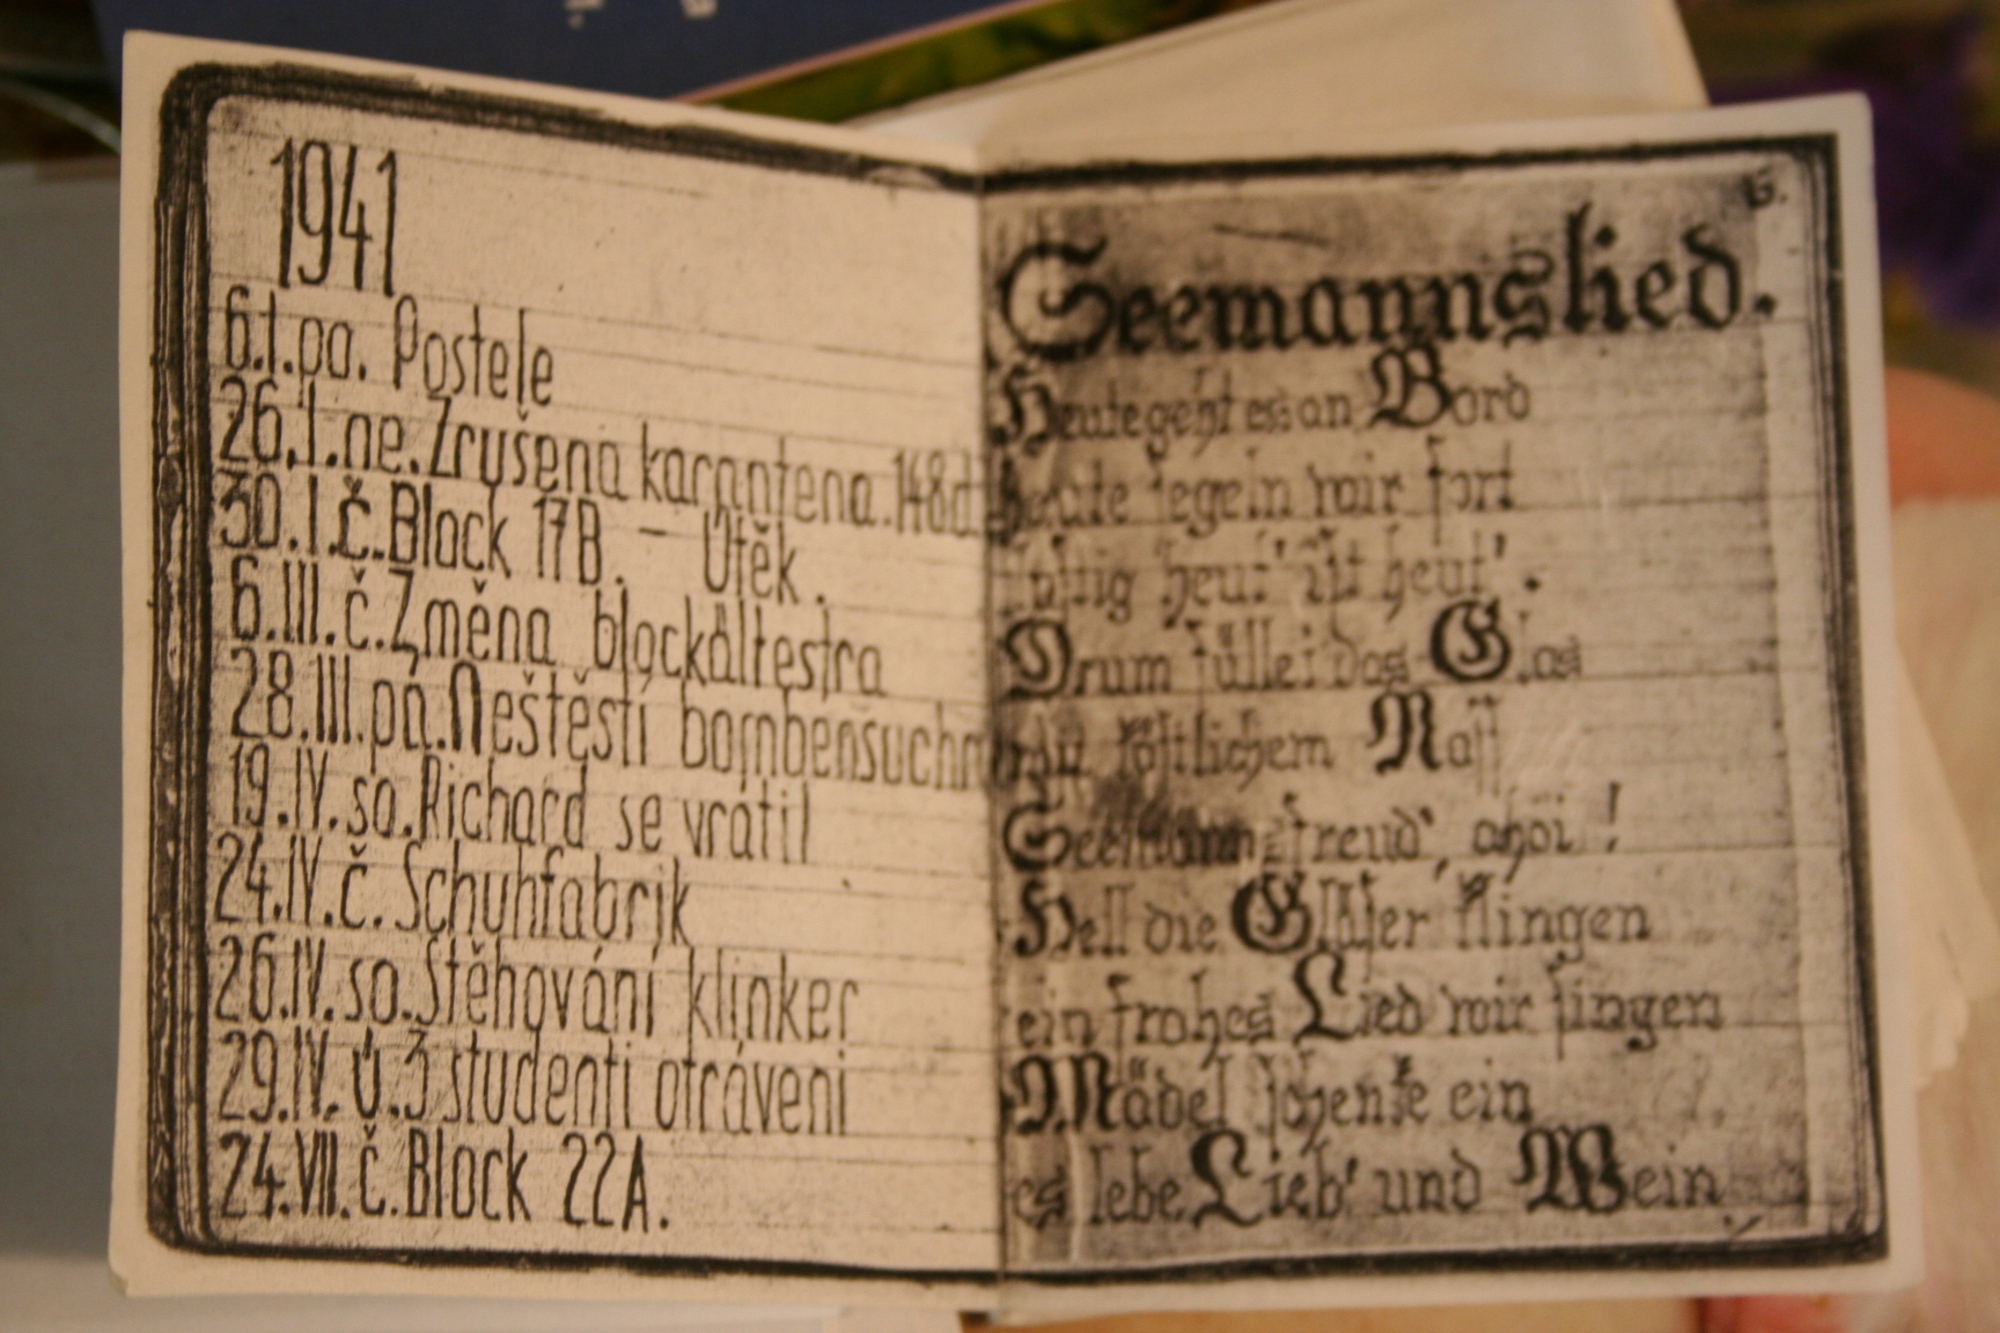 1941
6.I.po. Postele
26.I.ne. Zrušena karantena. 148d
30.I.č. Block 17B. – Útěk.
6.III.č. Změna blockältestra
28.III.pá. Neštěstí bombensuchr
19.IV.so. Richard se vrátil
24.IV.č. Schuhfabrik
26.IV.so. Stěhování klinker
29.IV.ú. 3 studenti otráveni
24.VII.č. Block 22A.
6.
Seemannslied.
Heute geht es an Bord
heute segeln wir fort
lustig heut' ist heut'.
Drum füllet das Glas
mit köstlichem Naß
Seemannsfreud', ahoi!
Hell die Gläser klingen
ein frohes Lied wir singen
Mädel schenke ein
es lebe Lieb' und Wein